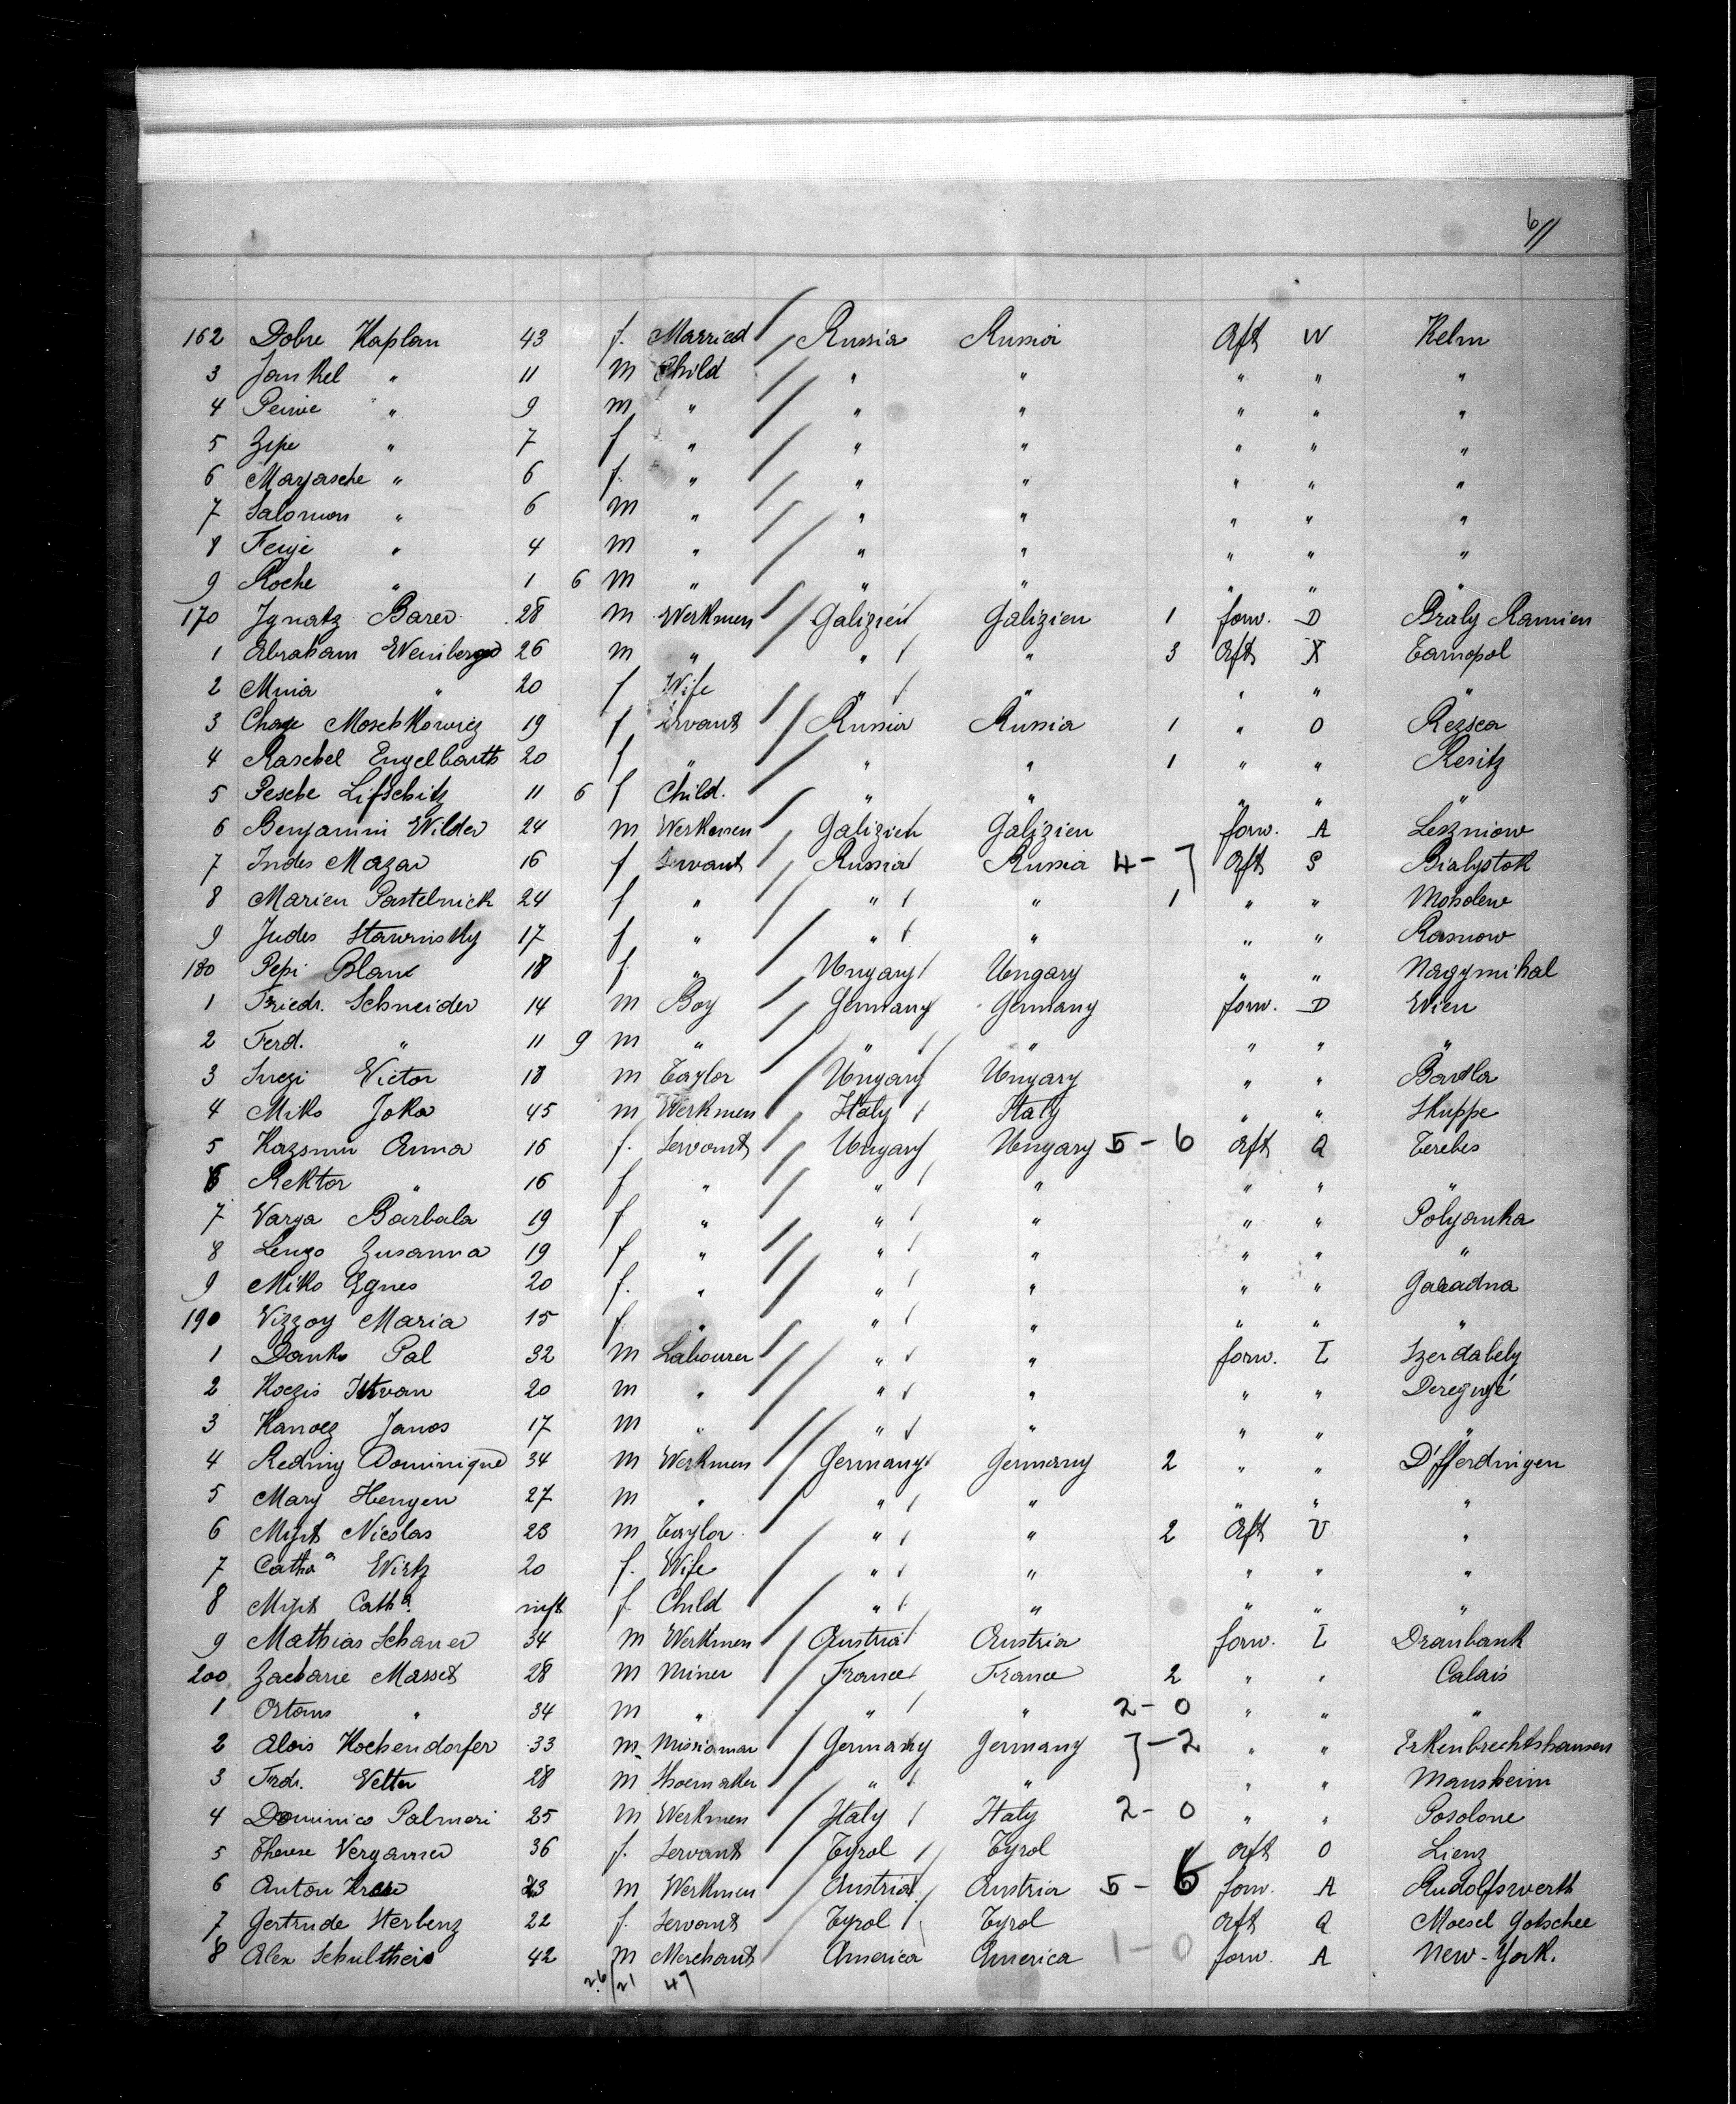 6//
162 Dobre Kaplan 43 f. Married Russia Russia Aft W Kelm
3 Jankel " 11 m Child " " " " "
4 Peiwe " 9 m " " " " " "
5 Zipe " 7 f " " " " " "
6 Maryasche " 6 f. " " " " " "
7 Salomon " 6 m " " " " " "
8 Feige " 4 m " " " " " "
9 Roche " 1 6 m " " " " " "
170 Ignatz Barer 28 m Werkmen Galizien Galizien 1 forw. D Braly Ramien
1 Abraham Weinberger 26 m " " " 3 Aft X Tarnopol
2 Mina " 20 f Wife " " " " "
3 Chaje Moschkowicz 19 f Servant Russia Russia 1 " O Rezsea
4 Raschel Engelbarth 20 f " " " 1 " " Resitz
5 Pesche Lifschitz 11 6 f Child. " " " " "
6 Benjamin Wilder 24 m Werkmen Galizien Galizien forw. A Leszniow
7 Indes Mazar 16 f Servant Russia Russia 4-7 Aft S Bialystok
8 Marien Pastelnick 24 f " " " 1 " " Mohden
9 Judes Stawinsky 17 f " " " " " Rasnow
180 Pepi Blau 18 f. " Ungary Ungary " " Nagymihal
1 Friedr. Schneider 14 m Boy Germany Germany forw. D Wien
2 Ferd. " 11 9 m " " " " " "
3 Inczi Victor 18 m Taylor Ungary Ungary " "
4 Miko Joka 45 m Werkmen Italy Italy " " Skuppe
5 Kazsmir Anna 16 f. Servant Ungary Ungary 5-6 Aft Q Terebes
6 Rektor " 16 f " " " " " "
7 Varga Barbala 19 f " " " " " Polyanka
8 Lengo Zusanna 19 f " " " " " "
9 Miko Agnes 20 f. " " " " " Garadna
190 Vizzoy Maria 15 f " " " " " "
1 Danko Pal 32 m Labourer " " forw. L Szerdahely
2 Koczis Istvan 20 m " " " " "
3 Kanocz Janos 17 m " " " " " "
4 Reding Dominique 34 m Werkmen Germany Germany 2 " " Differdingen
5 Mary Hengen 27 m " " " " " "
6 Nicolas 23 m Taylor " " 2 Aft U "
7 Catha Wirtz 20 f. Wife " " " " "
8 Catha. inft f Child " " " " "
9 Mathias Schauer 34 m Werkmen Austria Austria forw. L Draubank
200 Zacharie Masset 28 m Miner France France 2 " " Calais
1 " 34 m " " " 2-0 " " "
2 Alois Hochendorfer 33 m Germany Germany 7-2 " " Erkenbrechtshausen
3 Frdr. Vetter 28 m Shoemaker " " " " Mansheim
4 Dominico Palmeri 25 m Werkmen Italy Italy 2-0 " " Posolone
5 Therese Verganner 36 f. Servant Tyrol Tyrol Aft O Lienz
6 Anton 23 m Werkmen Austria Austria 5-6 forw. A Rudolfswerth
7 Gertrude Sterbenz 22 f. Servant Tyrol Tyrol Aft Q Moesel Gotschee
8 Alex Schultheis 42 m Merchant America America 1-0 forw. A New-York.
26/21 47